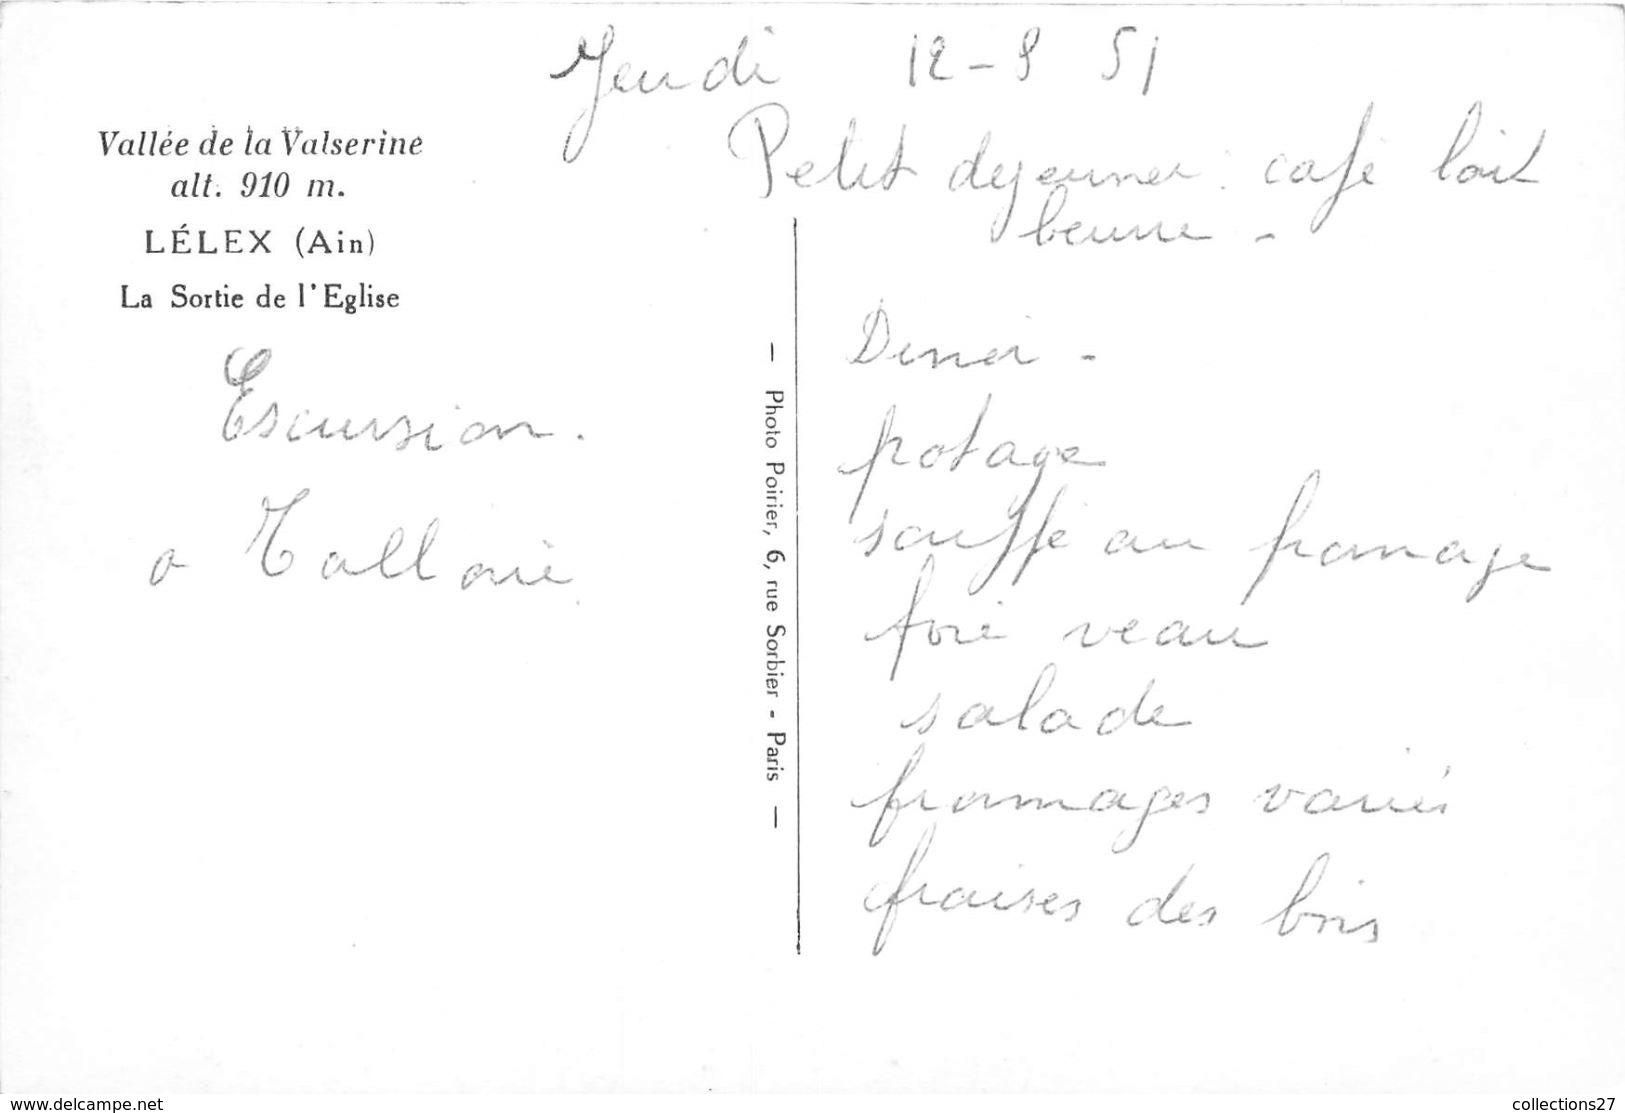 Jeudi 12-9 51
Petit dejeuner : café lait
beurre -
Vallée de la Valserine
alt. 910 m.
LÉLEX (Ain)
La Sortie de l'Eglise
Escursion.
a Talloire
— Photo Poirier, 6, rue Sorbier - Paris —
Diner -
potage
souffé au fromage
foie veau
salade
fromages variés
fraises des bois
www.delcampe.net
collections27